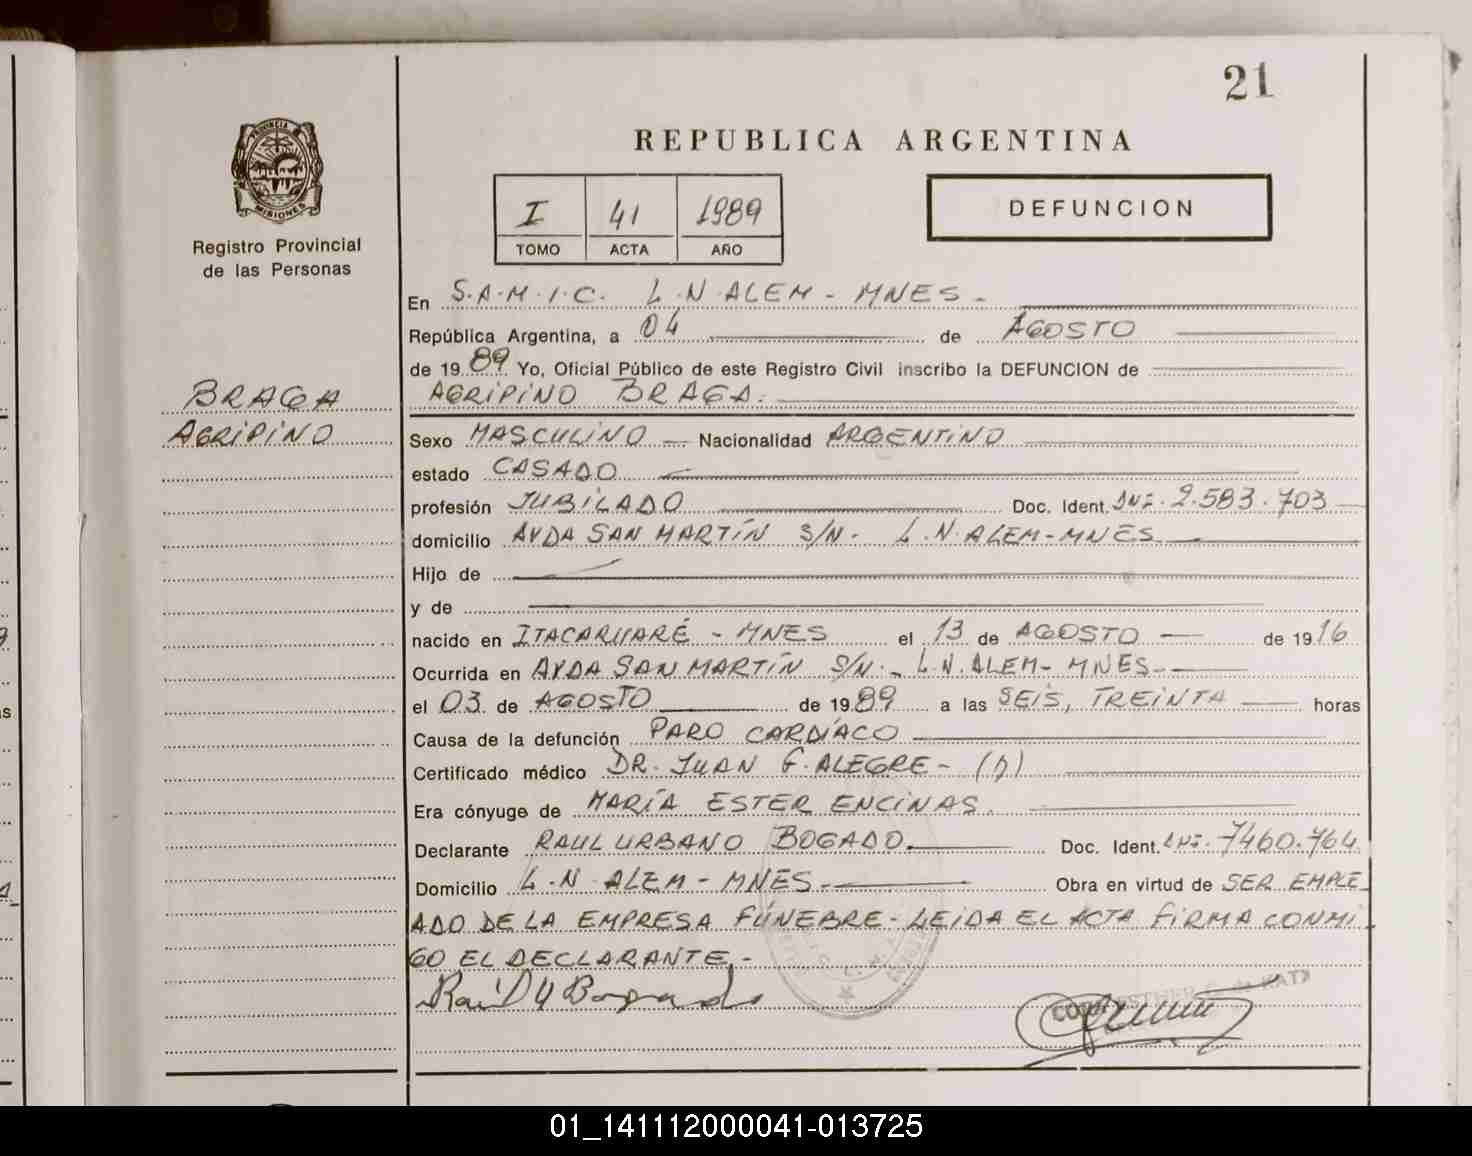 21
PROVINCIA DE
MISIONES
Registro Provincial
de las Personas
BRAGA
AGRIPINO
REPUBLICA ARGENTINA
I 41 1989
TOMO ACTA AÑO
DEFUNCION
En S.A.M.I.C. L.N.ALEM - MNES -
República Argentina, a 04 de AGOSTO
de 1989 Yo, Oficial Público de este Registro Civil inscribo la DEFUNCION de
AGRIPINO BRAGA.
Sexo MASCULINO — Nacionalidad ARGENTINO
estado CASADO
profesión JUBILADO Doc. Ident. DNI. 2.583.703
domicilio AVDA SAN MARTÍN S/N. L.N.ALEM-MNES
Hijo de
y de
nacido en ITACARUARÉ - MNES el 13 de AGOSTO — de 1916
Ocurrida en AVDA SAN MARTÍN S/N. - L.N.ALEM- MNES-
el 03 de AGOSTO de 1989 a las SEIS, TREINTA horas
Causa de la defunción PARO CARDÍACO
Certificado médico DR. JUAN G. ALEGRE -
Era cónyuge de MARÍA ESTER ENCINAS.
Declarante RAUL URBANO BOGADO. Doc. Ident. DNI. 7460.764
Domicilio L.N.ALEM - MNES.- Obra en virtud de SER EMPLE
ADO DE LA EMPRESA FÚNEBRE- LEIDA EL ACTA FIRMA CONMI
GO EL DECLARANTE.-
Raúl U Bogado
01_141112000041-013725